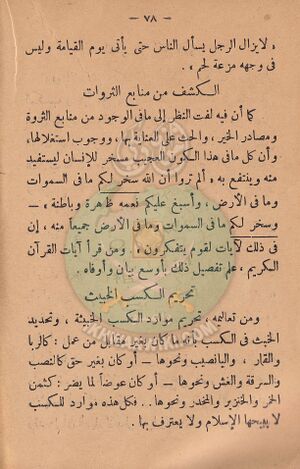 — ٧٨ —
« لا يزال الرجل يسأل الناس حتى يأتى يوم القيامة وليس
فى وجهه مزعة لحم » .
الكشف من منابع الثروات
كما أن فيه لفت النظر إلى مافى الوجود من منابع الثروة
ومصادر الخير ، والحث على العناية بها ، ووجوب استغلالها ،
وأن كل مافى هذا الكون العجيب مسخر للإنسان ليستفيد
منه وينتفع به « ألم تروا أن الله سخر لكم ما فى السموات
وما فى الأرض ، وأسبغ عليكم نعمه ظاهرة وباطنة » —
وسخر لكم ما فى السموات وما فى الأرض جميعاً منه ، إن
فى ذلك لآيات لقوم يتفكرون » . ومن قرأ آيات القرآن
الكريم ، علم تفصيل ذلك بأوسع بيان وأوفاه .
تحريم الكسب الخبيث
ومن تعاليمه ، تحريم موارد الكسب الخبيثة ، وتحديد
الخبث فى الكسب بأنه ما كان بغير مقابل من عمل : كالربا
والقمار ، واليانصيب ونحوها — أو كان بغير حق كالنصب
والسرقة والغش ونحوها — أو كان عوضاً لما يضر : كثمن
الخمر والخنزير والمخدر ونحوها .. فكل هذه موارد للكسب
لا يبيحها الإسلام ولا يعترف بها .